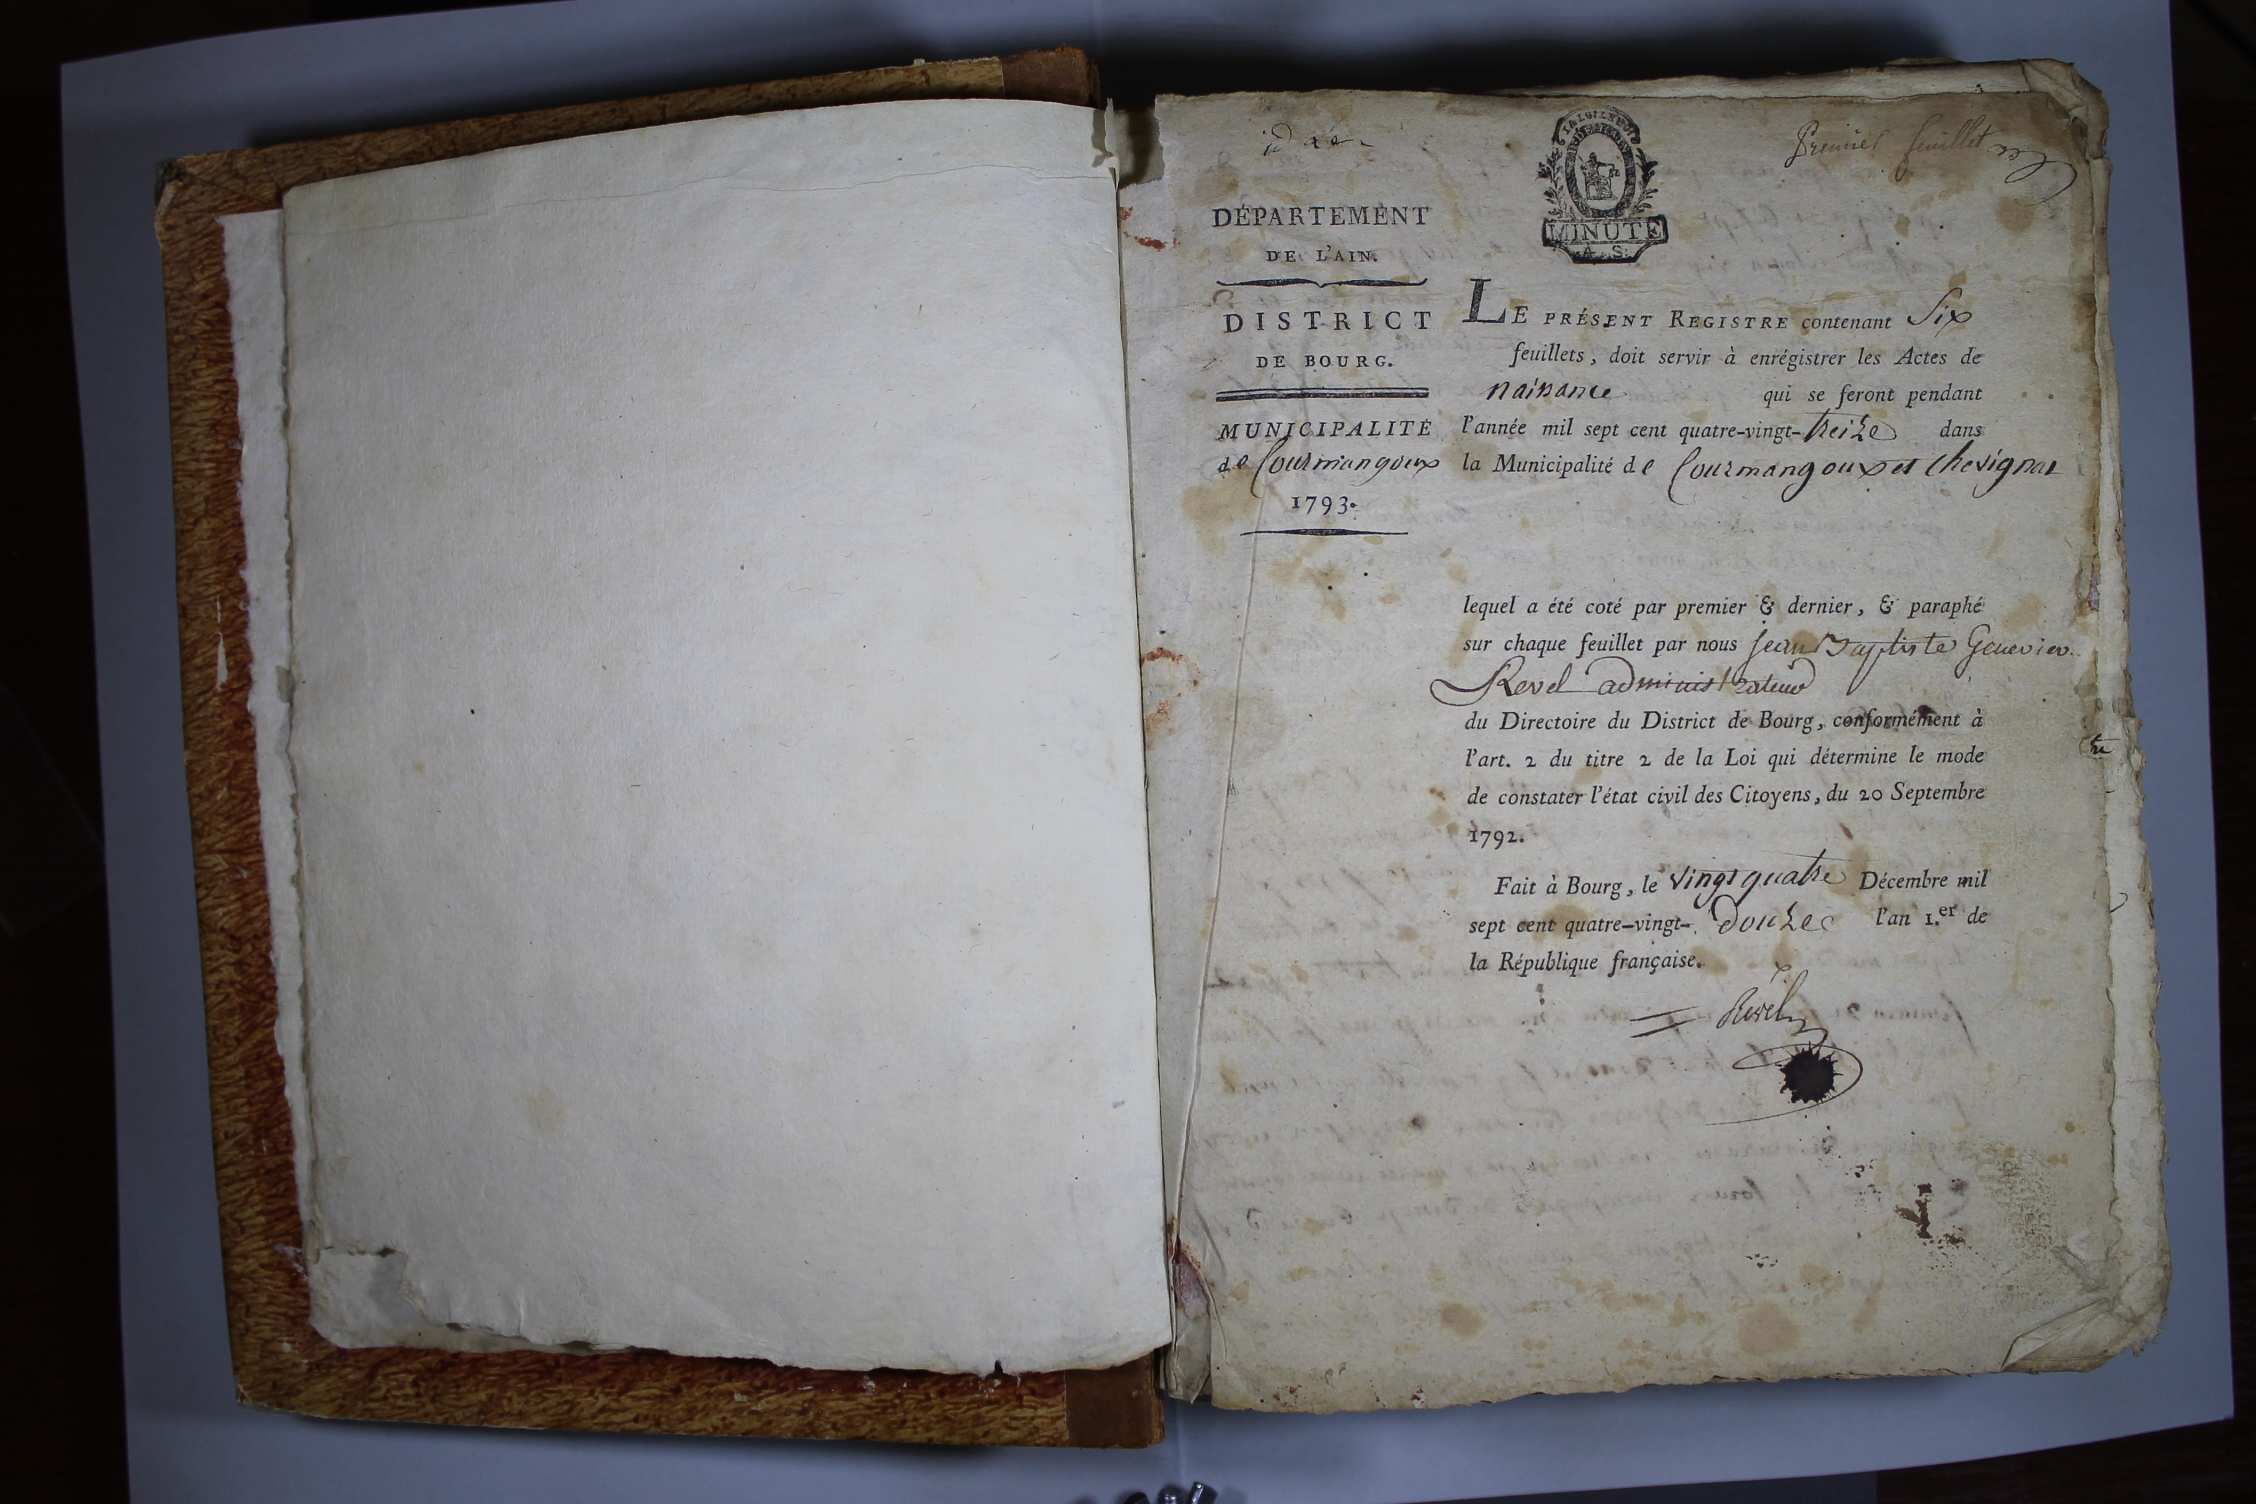 Premier feuillet
MINUTE
A. S.
DÉPARTEMENT
DE L'AIN.
DISTRICT
DE BOURG.
MUNICIPALITÉ
de Courmangoux
1793.
LE PRÉSENT REGISTRE contenant Six
feuillets, doit servir à enrégistrer les Actes de
naissance qui se feront pendant
l'année mil sept cent quatre-vingt-treize dans
la Municipalité de Courmangoux et Chevignat
lequel a été coté par premier & dernier, & paraphé
sur chaque feuillet par nous jean Baptiste
Revel administrateur
du Directoire du District de Bourg, conformément à
l'art. 2 du titre 2 de la Loi qui détermine le mode
de constater l'état civil des Citoyens, du 20 Septembre
1792.
Fait à Bourg, le vingt quatre Décembre mil
sept cent quatre-vingt-douze l'an 1.er de
la République française.
Revel